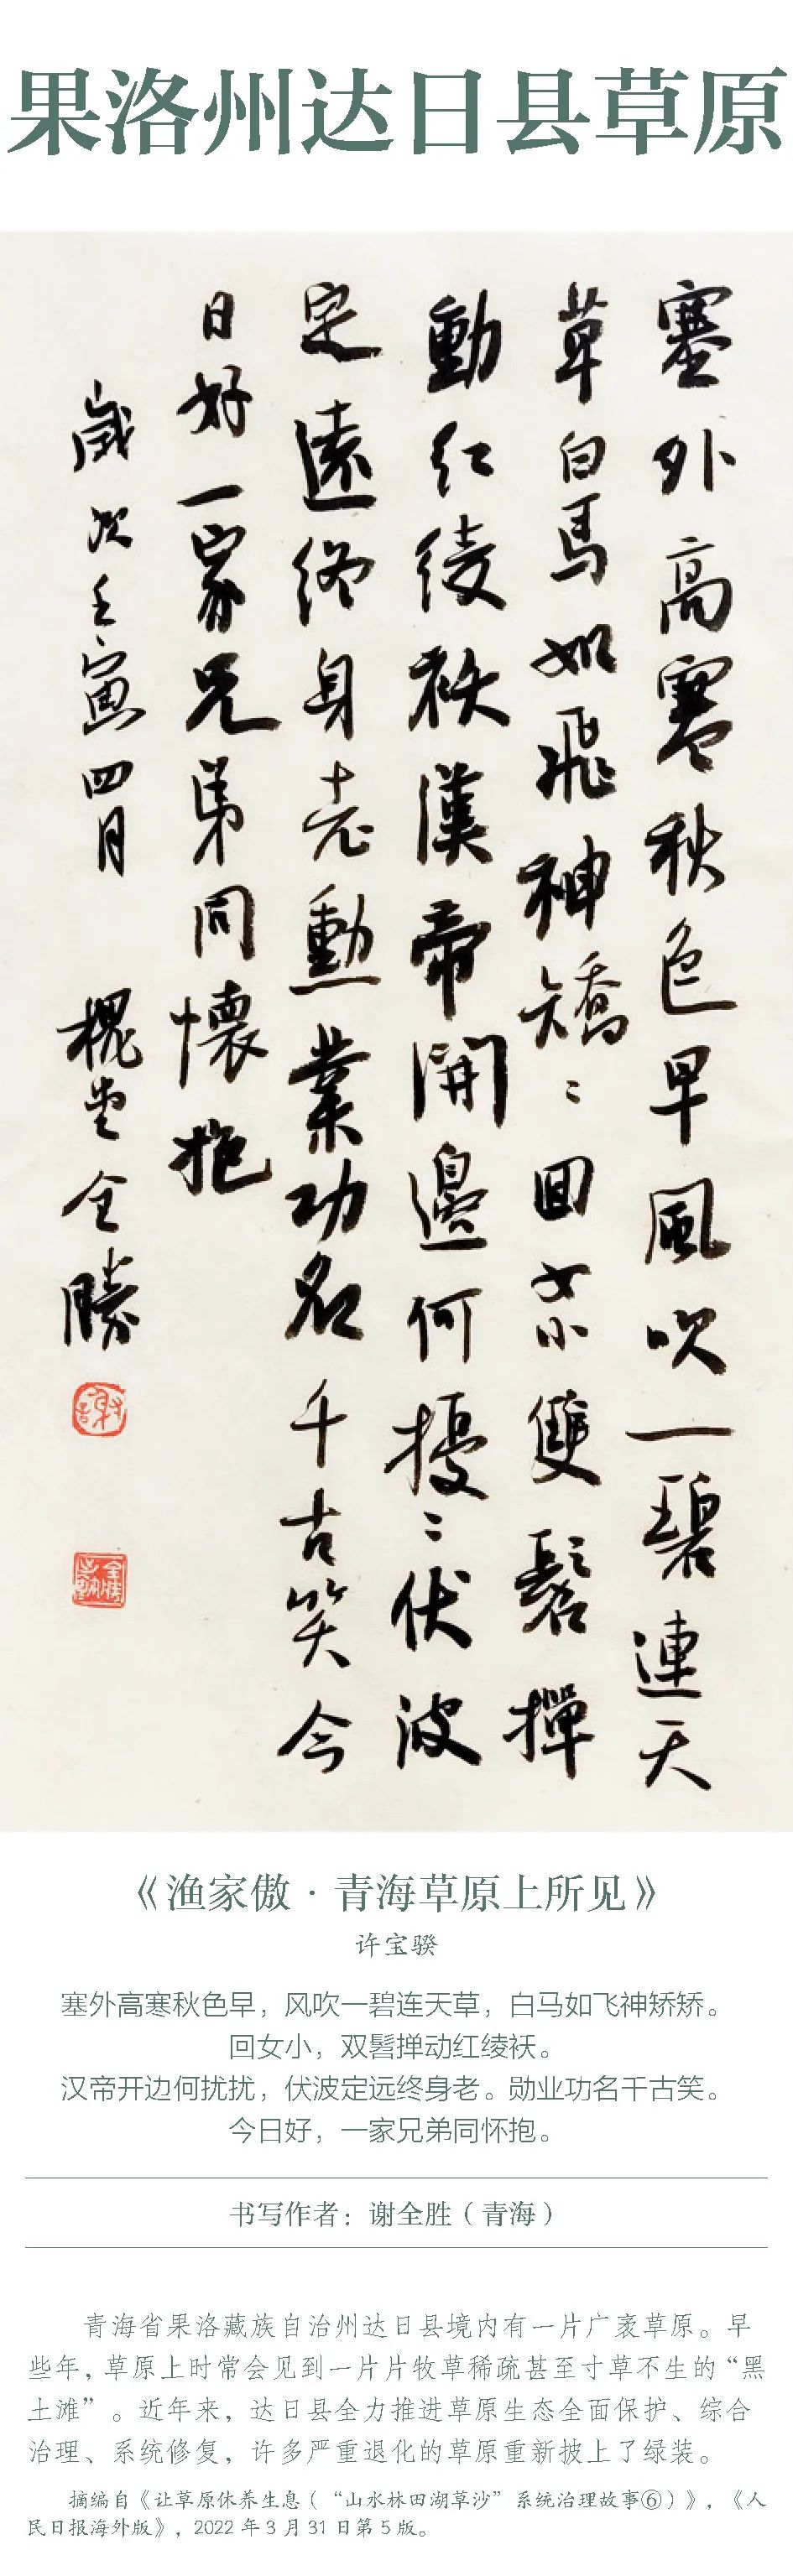 果洛州达日县草原
塞外高寒秋色早風吹一碧連天
草白馬如飛神矯〻回女小雙髻撣
動紅綾袄漢帝開邊何擾〻伏波
定遠終身老勳業功名千古笑今
日好一家兄弟同懷抱
歲次壬寅四月 槐堂全勝
《渔家傲·青海草原上所见》
许宝骙
塞外高寒秋色早，风吹一碧连天草，白马如飞神矫矫。
回女小，双髻掸动红绫袄。
汉帝开边何扰扰，伏波定远终身老。勋业功名千古笑。
今日好，一家兄弟同怀抱。
书写作者：谢全胜（青海）
青海省果洛藏族自治州达日县境内有一片广袤草原。早
些年，草原上时常会见到一片片牧草稀疏甚至寸草不生的“黑
土滩”。近年来，达日县全力推进草原生态全面保护、综合
治理、系统修复，许多严重退化的草原重新披上了绿装。
摘编自《让草原休养生息（“山水林田湖草沙”系统治理故事⑥）》，《人
民日报海外版》，2022年3月31日第5版。